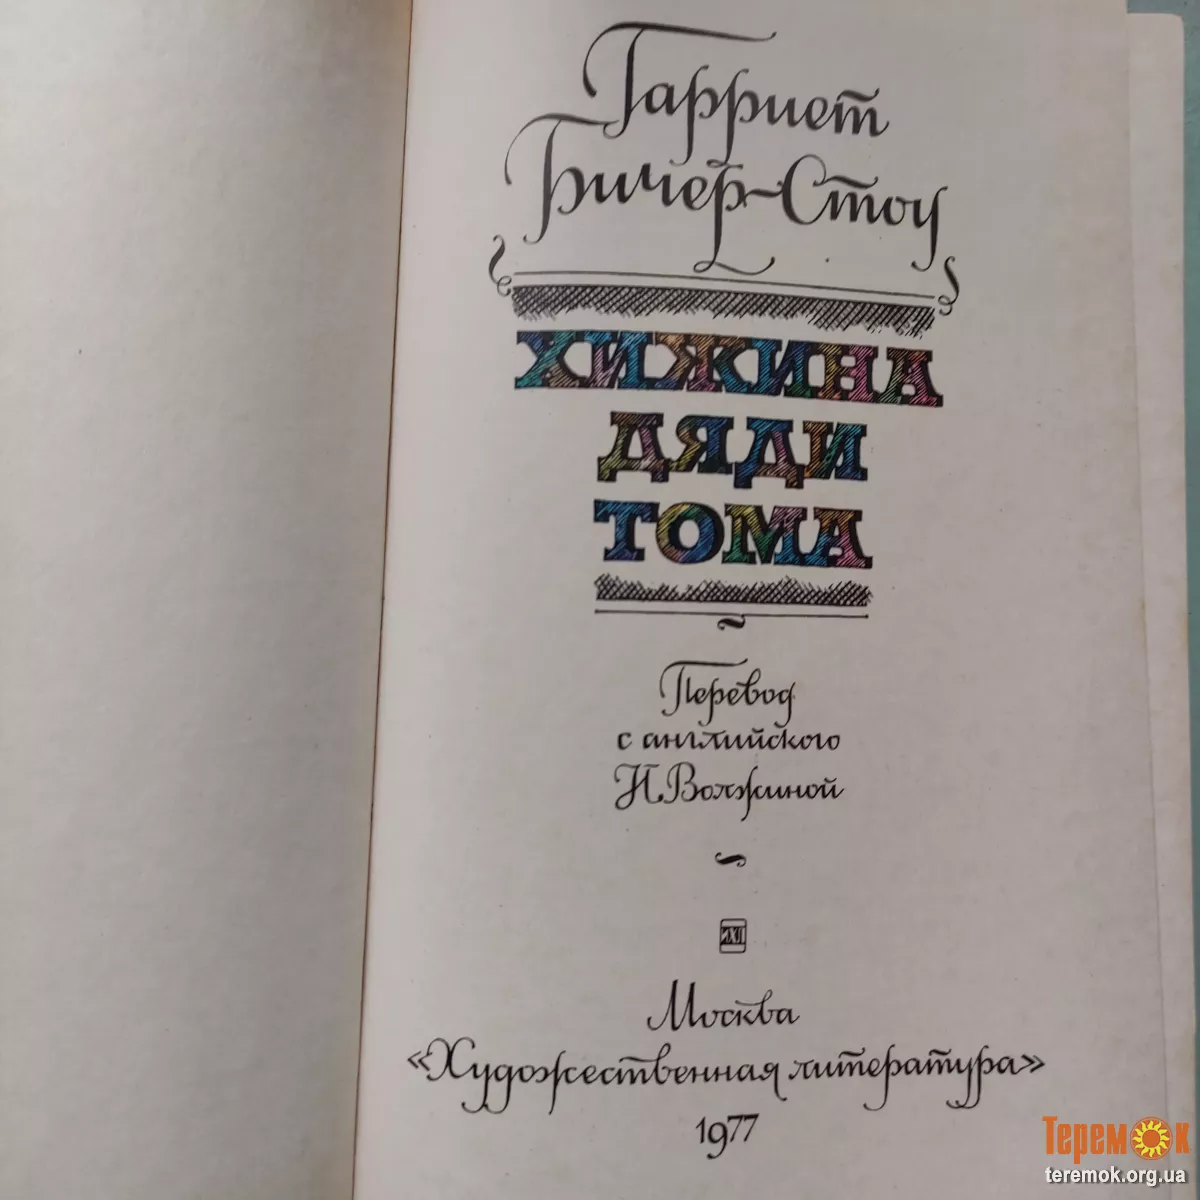 Гарриет
Бичер-Стоу
ХИЖИНА
ДЯДИ
ТОМА
Перевод
с английского
Н. Волжиной
ИХЛ
Москва
«Художественная литература»
1977
Теремок
teremok.org.ua